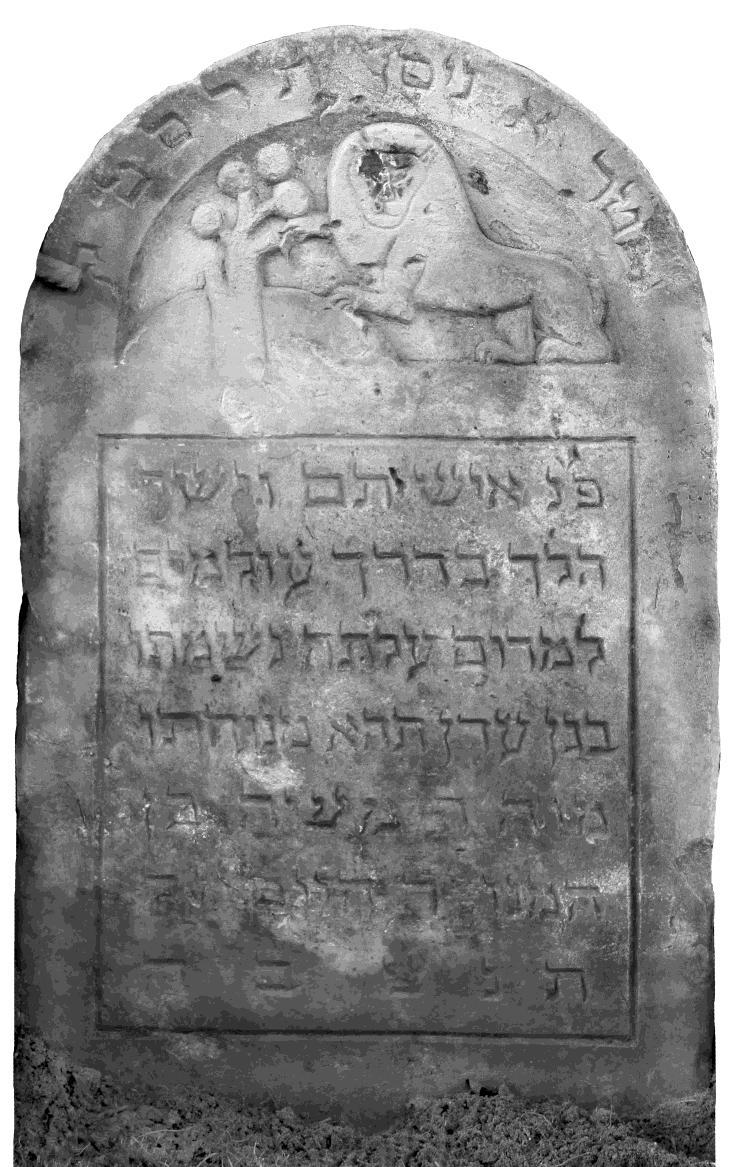 א ניסן
פנ איש תם וישר
הלך בדרך עולמים
למרום עלתה נשמתו
בגן עדן תהא מנוחתו
מוה ר משה בן
המנו ר
ת נ צ ב ה